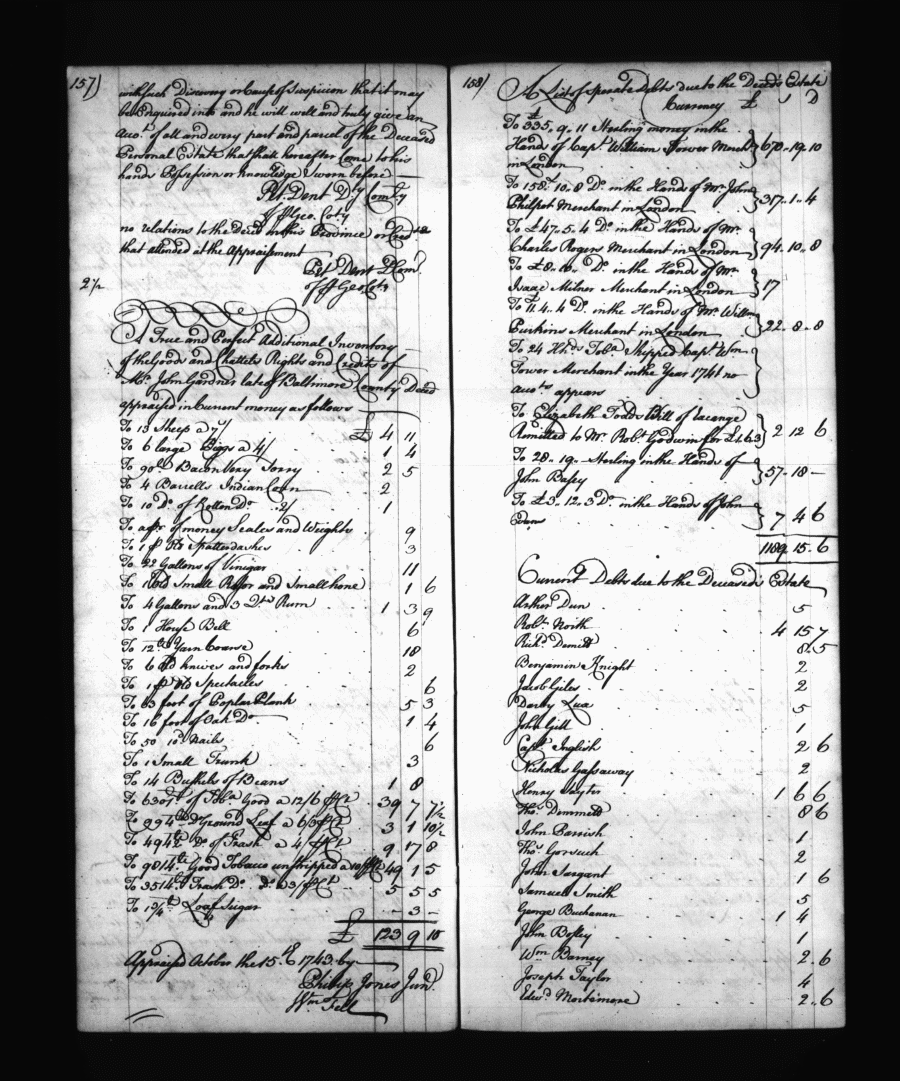 157)
with such Discovery or Cause of Suspicion that it may
be Enquired into and he will well and truly give an
Acco.t of all and every part and parcel of the Deceased
Personal Estate that shall hereafter Come to his
hands Possession or knowledge Sworn before
Pet. Dent Dy Comry
Geo. Coty
no relations to the Deced in this Province or Credrs
that attended at the Appraisment
Pet Dent DCom
Geo Coty
2½
A True and Perfect Additional Inventory
of the Goods and Chattels Rights and Credits of
Mr. John Gardner late of Balthmore County Deced
appraised in Current money as follows
To 13 Sheep a 7/ £ 4 11
To 6 large Piggs a 4/ 1 4
To 90 lb Bacon Very Sorry 2 5
To 4 Barrells Indian Corn 2
To 10 Do of Rotten Do 2/ 1
To a pr of money Scales and Weights 9
To 1 pr Old Spatterdashes 3
To 22 Gallons of Vinigar 11
To 1 Old Small Razor and Small hone 1 6
To 4 Gallons and 3 Qts Rum 1 3 9
To 1 House Bell 6
To 12 lb Yarn Coarse 18
To 6 Old knives and forks 2
To 1 pr Old Spectacles 6
To 63 feet of Poplar Plank 5 3
To 16 foot of Oak Do 1 4
To 50 10d Nails 6
To 1 Small Trunk 3
To 14 Bushels of Beans 1 8
To 6307 lb of Tobo Good a 12/6 pCt 39 7 7½
To 994 lb Do Ground Leaf a 6/3 pCt 3 1 10½
To 4942 Do of Trash a 4/ pCt 9 17 8
To 9814 lb Good Tobacco unstripped a 10/ pCt 49 1 5
To 3514 lb Trash Do Do a 3/ pCt 5 5 5
To 1 3/4 lb Loaf Sugar - 3 -
£ 123 9 10
Appraised October the 15th 1743 by
Philip Jones Junr
Wm Fell
158)
A List of Sperate Debts due to the Deceds Estate
Currency £ S D
To £335..9..11 Sterling money in the
Hands of Capt William Tower Mercht
in London 670..19..10
To 158..10..8 Do in the Hands of Mr John
Philpot Merchant in London 317..1..4
To £47..5..4 Do in the Hands of Mr
Charles Rogers Merchant in London 94..10..8
To £8..10.. Do in the Hands of Mr
Isaac Milner Merchant in London 17
To £11..4..4 Do in the Hands of Mr Willm
Perkins Merchant in London 22..8..8
To 24 Hhds Tobo Shipped Capt Wm
Tower Merchant in the Year 1741 no
Accots appears
To Elizabeth Todds Bill of Excange
Remitted to Mr Robt Godwin for £1:6:3 2 12 6
To 28..19.. Sterling in the Hands of
John Bafey 57..18 -
To £3..12..3 Do in the Hands of John
Evans 7 4 6
1189..15..6
Current Debts due to the Deceaseds Estate
Arthur Dun 5
Robt North 4 15 7
Richd Demitt 8..5
Benjamin Knight 2
Jacob Giles 2
Darby Lux 5
John Gill 1
Capt Inglish 2 6
Nicholas Gassaway 2
Henry Sayter 1 6 6
Thos Demmett 8 6
John Parrish 1
Thos Gorsuch 2
John Sargant 1 6
Samuel Smith 5
George Buchanan 1 4
John Bosley 1
Wm Barney 2..6
Joseph Taylor 4
Edwd Mortemore 2..6